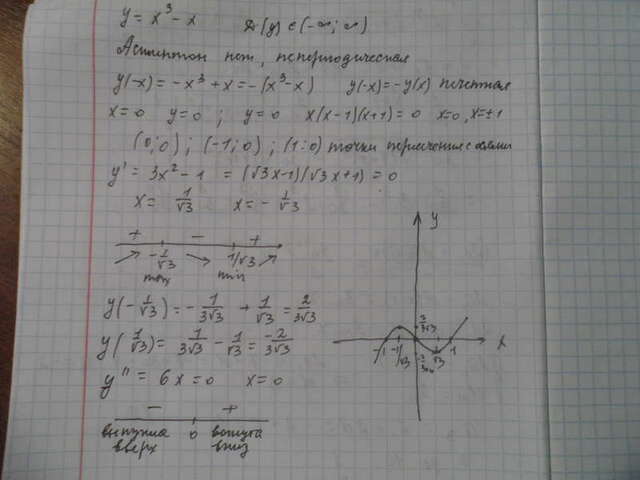 y = x³ - x   D(y) ∈ (-∞; ∞)
Асимптот нет, непериодическая
y(-x) = -x³ + x = -(x³ - x)   y(-x) = -y(x) нечетная
x = 0   y = 0 ; y = 0   x(x-1)(x+1) = 0   x = 0, x = ±1
(0; 0) ; (-1; 0) ; (1; 0) точки пересечения с осями
y' = 3x² - 1 = (√3x-1)(√3x+1) = 0
x = 1/√3   x = - 1/√3
+ - +
-1/√3   1/√3
max   min
y(-1/√3) = - 1/3√3 + 1/√3 = 2/3√3
y(1/√3) = 1/3√3 - 1/√3 = -2/3√3
y'' = 6x = 0   x = 0
- +
выпукла 0 вогнута
вверх вниз
y
x
2/3√3
-1 -1/√3 1/√3 1